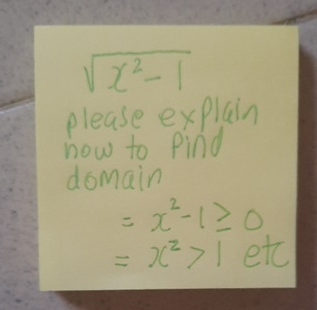 √x²-1
please explain
how to find
domain
= x²-1≥0
= x²>1 etc